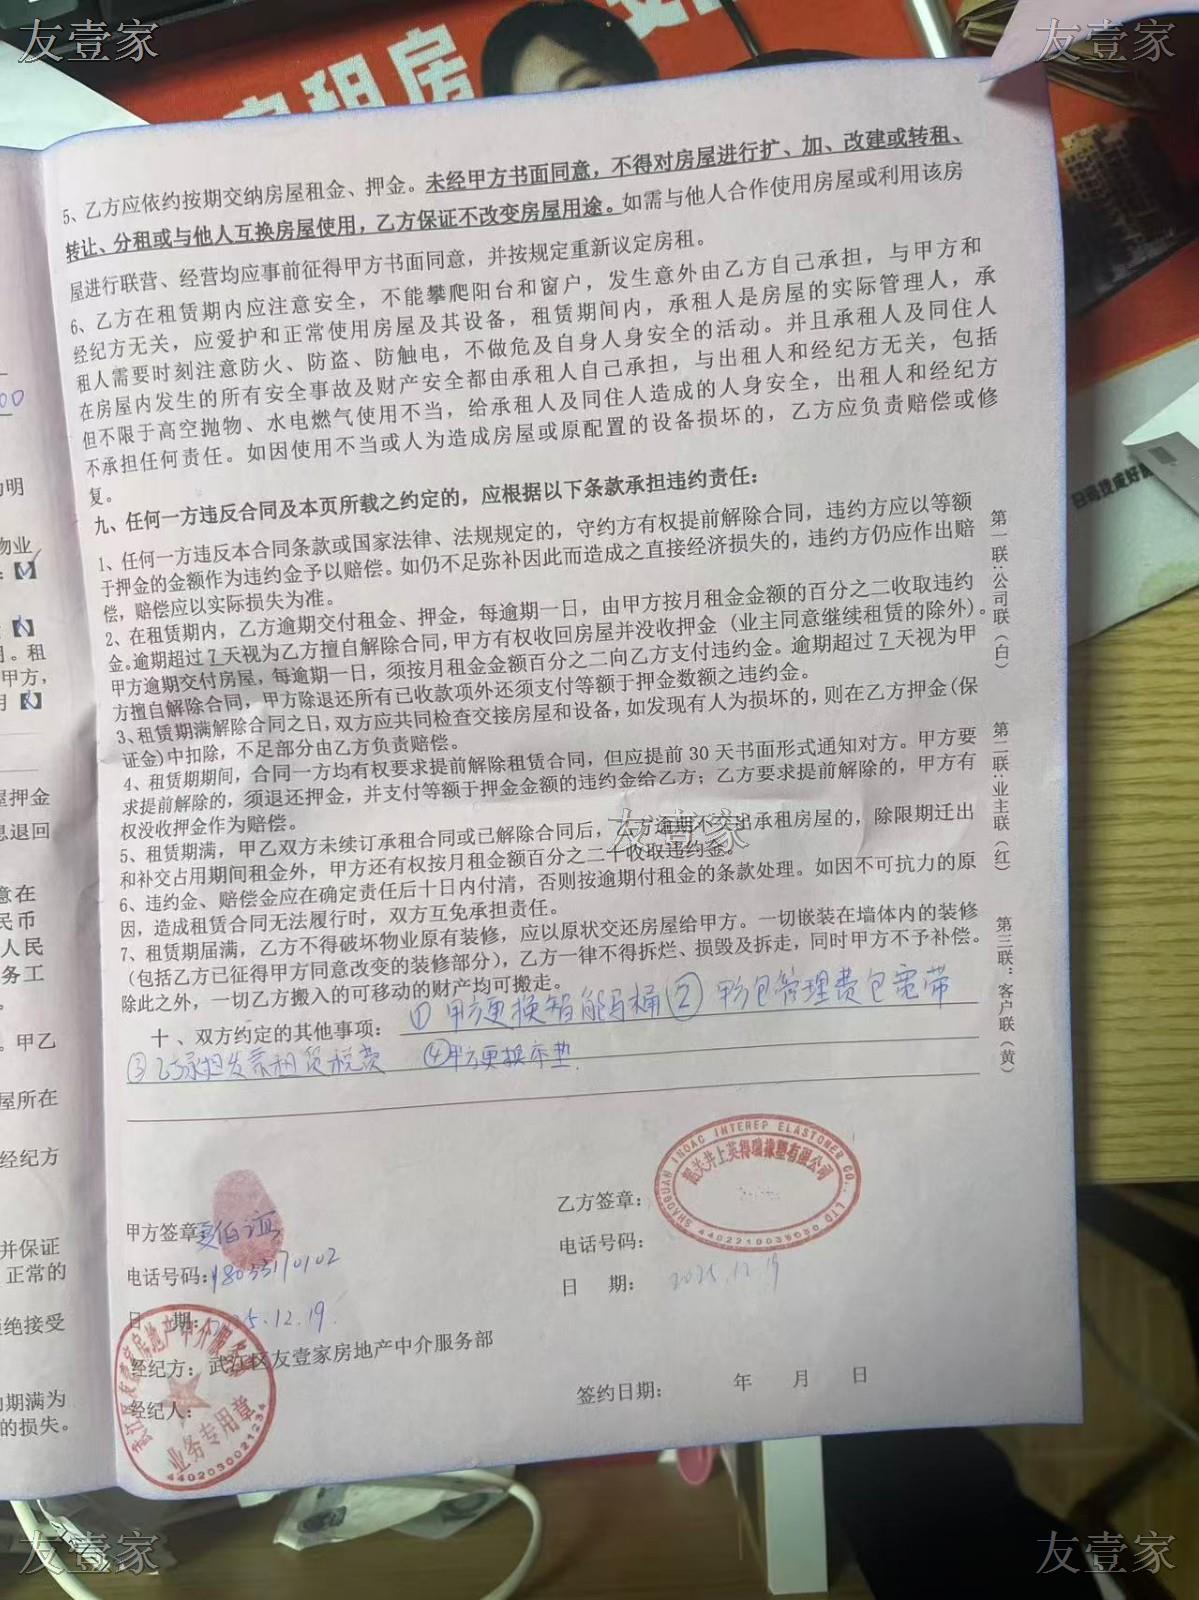 友壹家
友壹家
租房
5、乙方应依约按期交纳房屋租金、押金。未经甲方书面同意，不得对房屋进行扩、加、改建或转租、
转让、分租或与他人互换房屋使用，乙方保证不改变房屋用途。如需与他人合作使用房屋或利用该房
屋进行联营、经营均应事前征得甲方书面同意，并按规定重新议定房租。
6、乙方在租赁期内应注意安全，不能攀爬阳台和窗户，发生意外由乙方自己承担，与甲方和
经纪方无关，应爱护和正常使用房屋及其设备，租赁期间内，承租人是房屋的实际管理人，承
租人需要时刻注意防火、防盗、防触电，不做危及自身人身安全的活动。并且承租人及同住人
在房屋内发生的所有安全事故及财产安全都由承租人自己承担，与出租人和经纪方无关，包括
但不限于高空抛物、水电燃气使用不当，给承租人及同住人造成的人身安全，出租人和经纪方
不承担任何责任。如因使用不当或人为造成房屋或原配置的设备损坏的，乙方应负责赔偿或修
复。
九、任何一方违反合同及本页所载之约定的，应根据以下条款承担违约责任：
1、任何一方违反本合同条款或国家法律、法规规定的，守约方有权提前解除合同，违约方应以等额
于押金的金额作为违约金予以赔偿。如仍不足弥补因此而造成之直接经济损失的，违约方仍应作出赔
偿，赔偿应以实际损失为准。
2、在租赁期内，乙方逾期交付租金、押金，每逾期一日，由甲方按月租金金额的百分之二收取违约
金。逾期超过7天视为乙方擅自解除合同，甲方有权收回房屋并没收押金（业主同意继续租赁的除外）。
甲方逾期交付房屋，每逾期一日，须按月租金金额百分之二向乙方支付违约金。逾期超过7天视为甲
方擅自解除合同，甲方除退还所有已收款项外还须支付等额于押金数额之违约金。
3、租赁期满解除合同之日，双方应共同检查交接房屋和设备，如发现有人为损坏的，则在乙方押金(保
证金)中扣除，不足部分由乙方负责赔偿。
4、租赁期期间，合同一方均有权要求提前解除租赁合同，但应提前30天书面形式通知对方。甲方要
求提前解除的，须退还押金，并支付等额于押金金额的违约金给乙方；乙方要求提前解除的，甲方有
权没收押金作为赔偿。
5、租赁期满，甲乙双方未续订承租合同或已解除合同后，乙方逾期不交出承租房屋的，除限期迁出
和补交占用期间租金外，甲方还有权按月租金额百分之二十收取违约金。
6、违约金、赔偿金应在确定责任后十日内付清，否则按逾期付租金的条款处理。如因不可抗力的原
因，造成租赁合同无法履行时，双方互免承担责任。
7、租赁期届满，乙方不得破坏物业原有装修，应以原状交还房屋给甲方。一切嵌装在墙体内的装修
（包括乙方已征得甲方同意改变的装修部分），乙方一律不得拆烂、损毁及拆走，同时甲方不予补偿。
除此之外，一切乙方搬入的可移动的财产均可搬走。
十、双方约定的其他事项：①甲方更换智能马桶②甲方包管理费包宽带
③乙方承担发票租赁税费 ④甲方更换床垫.
第一联:公司联（白）
第二联:业主联（红）
第三联：客户联（黄）
友壹家
甲方签章：
电话号码：18033170102
日 期：2025.12.19.
经纪方：武江区友壹家房地产中介服务部
经纪人：
武江区友壹家房地产中介服务部
业务专用章
4402030021234
乙方签章：
电话号码：
日 期：2025.12.19
SHAOGUAN INOAC INTEREP ELASTOMER CO., LTD
韶关井上英得瑞橡塑有限公司
签约日期： 年 月 日
00
明
物业
。租
甲方，
月
屋押金
息退回
意在
民币
人民
务工
。甲乙
屋所在
经纪方
并保证
正常的
拒绝接受
期满为
的损失。
友壹家
友壹家